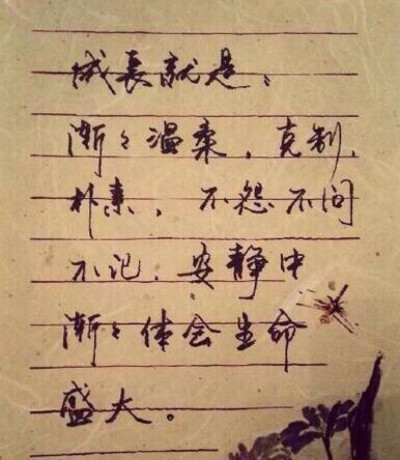 成長就是：
渐々温柔，克制，
朴素，不怨不问
不记，安静中
渐々体会生命
盛大。